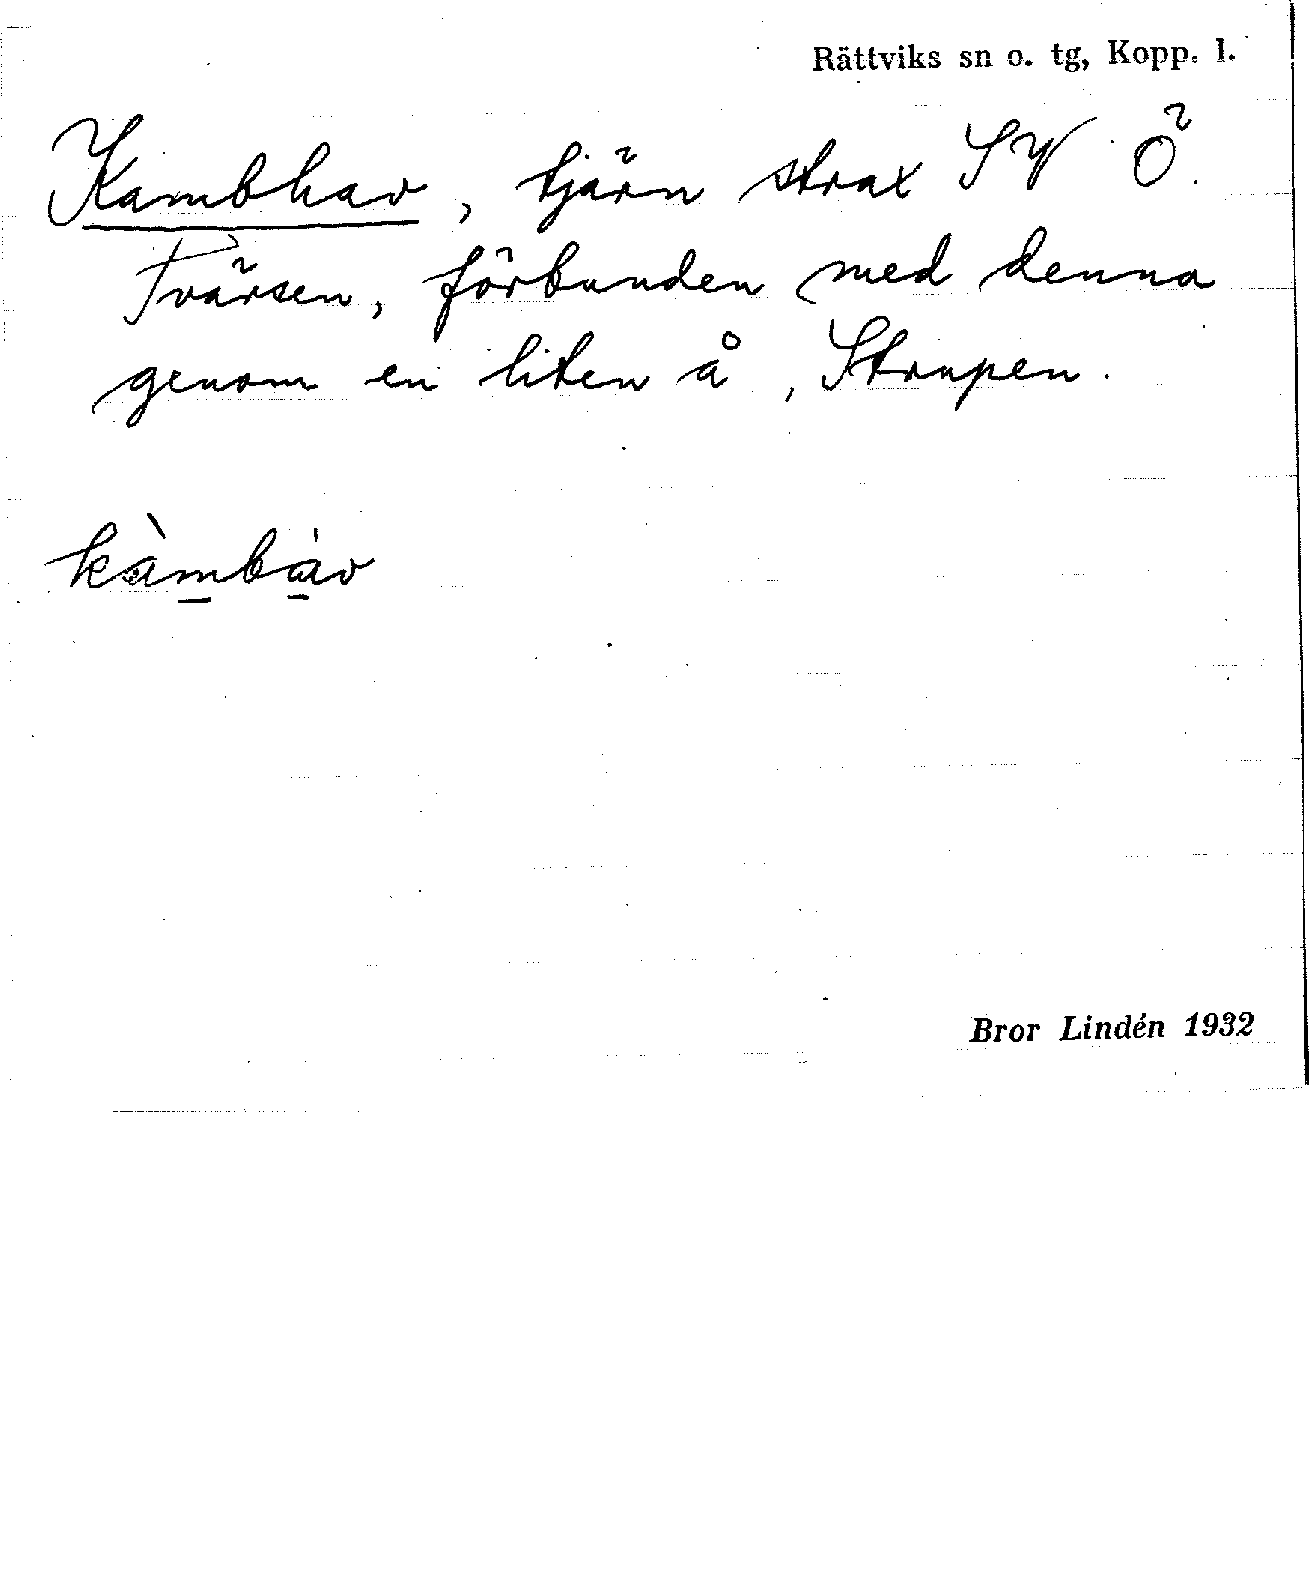 Rättviks sn o. tg, Kopp. l.
Kambhav, tjärn strax SV Ö.
Tvärsen, förbunden med denna
genom en liten å, Strupen.
kàmbàv
Bror Lindén 1932